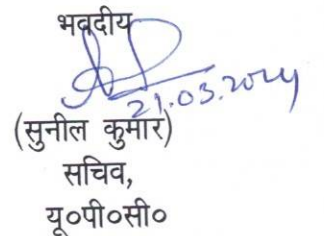 भवदीय
21.03.2024
(सुनील कुमार)
सचिव,
यू०पी०सी०